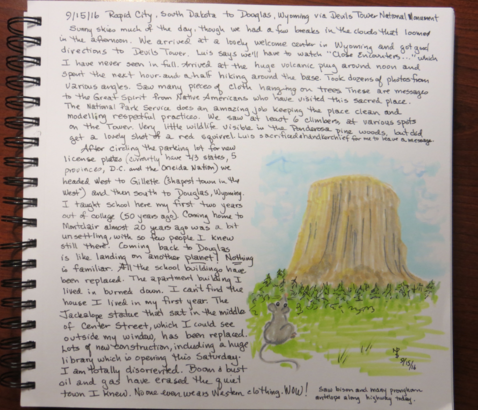 9/15/16 Rapid City, South Dakota to Douglas, Wyoming via Devils Tower National Monument
Sunny skies much of the day, though we had a few breaks in the clouds that loomed
in the afternoon. We arrived at a lovely welcome center in Wyoming and got good
directions to Devils Tower. Luis says we'll have to watch "Close Encounters..." which
I have never seen in full. Arrived at the huge volcanic plug around noon and
spent the next hour-and-a-half hiking around the base. Took dozens of photos from
various angles. Saw many pieces of cloth hanging on trees. These are messages
to the Great Spirit from Native Americans who have visited this sacred place.
The National Park Service does an amazing job keeping the place clean, and
modelling respectful practices. We saw at least 6 climbers at various spots
on the Tower. Very little wildlife visible in the Ponderosa pine woods, but did
get a lovely shot of a red squirrel. Luis sacrificed handkerchief for me to leave a message
After circling the parking lot for new
license plates (currently have 43 states, 5
provinces, D.C. and the Oneida Nation) we
headed west to Gillette (
town in the
West) and then south to Douglas, Wyoming.
I taught school here my first two years
out of college (50 years ago). Coming home to
Montclair almost 20 years ago was a bit
unsettling, with so few people I knew
still there. Coming back to Douglas
is like landing on another planet! Nothing
is familiar. All the school buildings have
been replaced. The apartment building I
lived in burned down. I can't find the
house I lived in my first year. The
Jackalope statue that sat in the middle
of Center Street, which I could see
outside my window, has been replaced.
Lots of new construction, including a huge
library which is opening this Saturday.
I am totally disoriented. Boom & bust
oil and gas have erased the quiet
town I knew. No one even wears Western clothing. Wow!
9/15/16
Saw bison and many pronghorn
antelope along highway today.